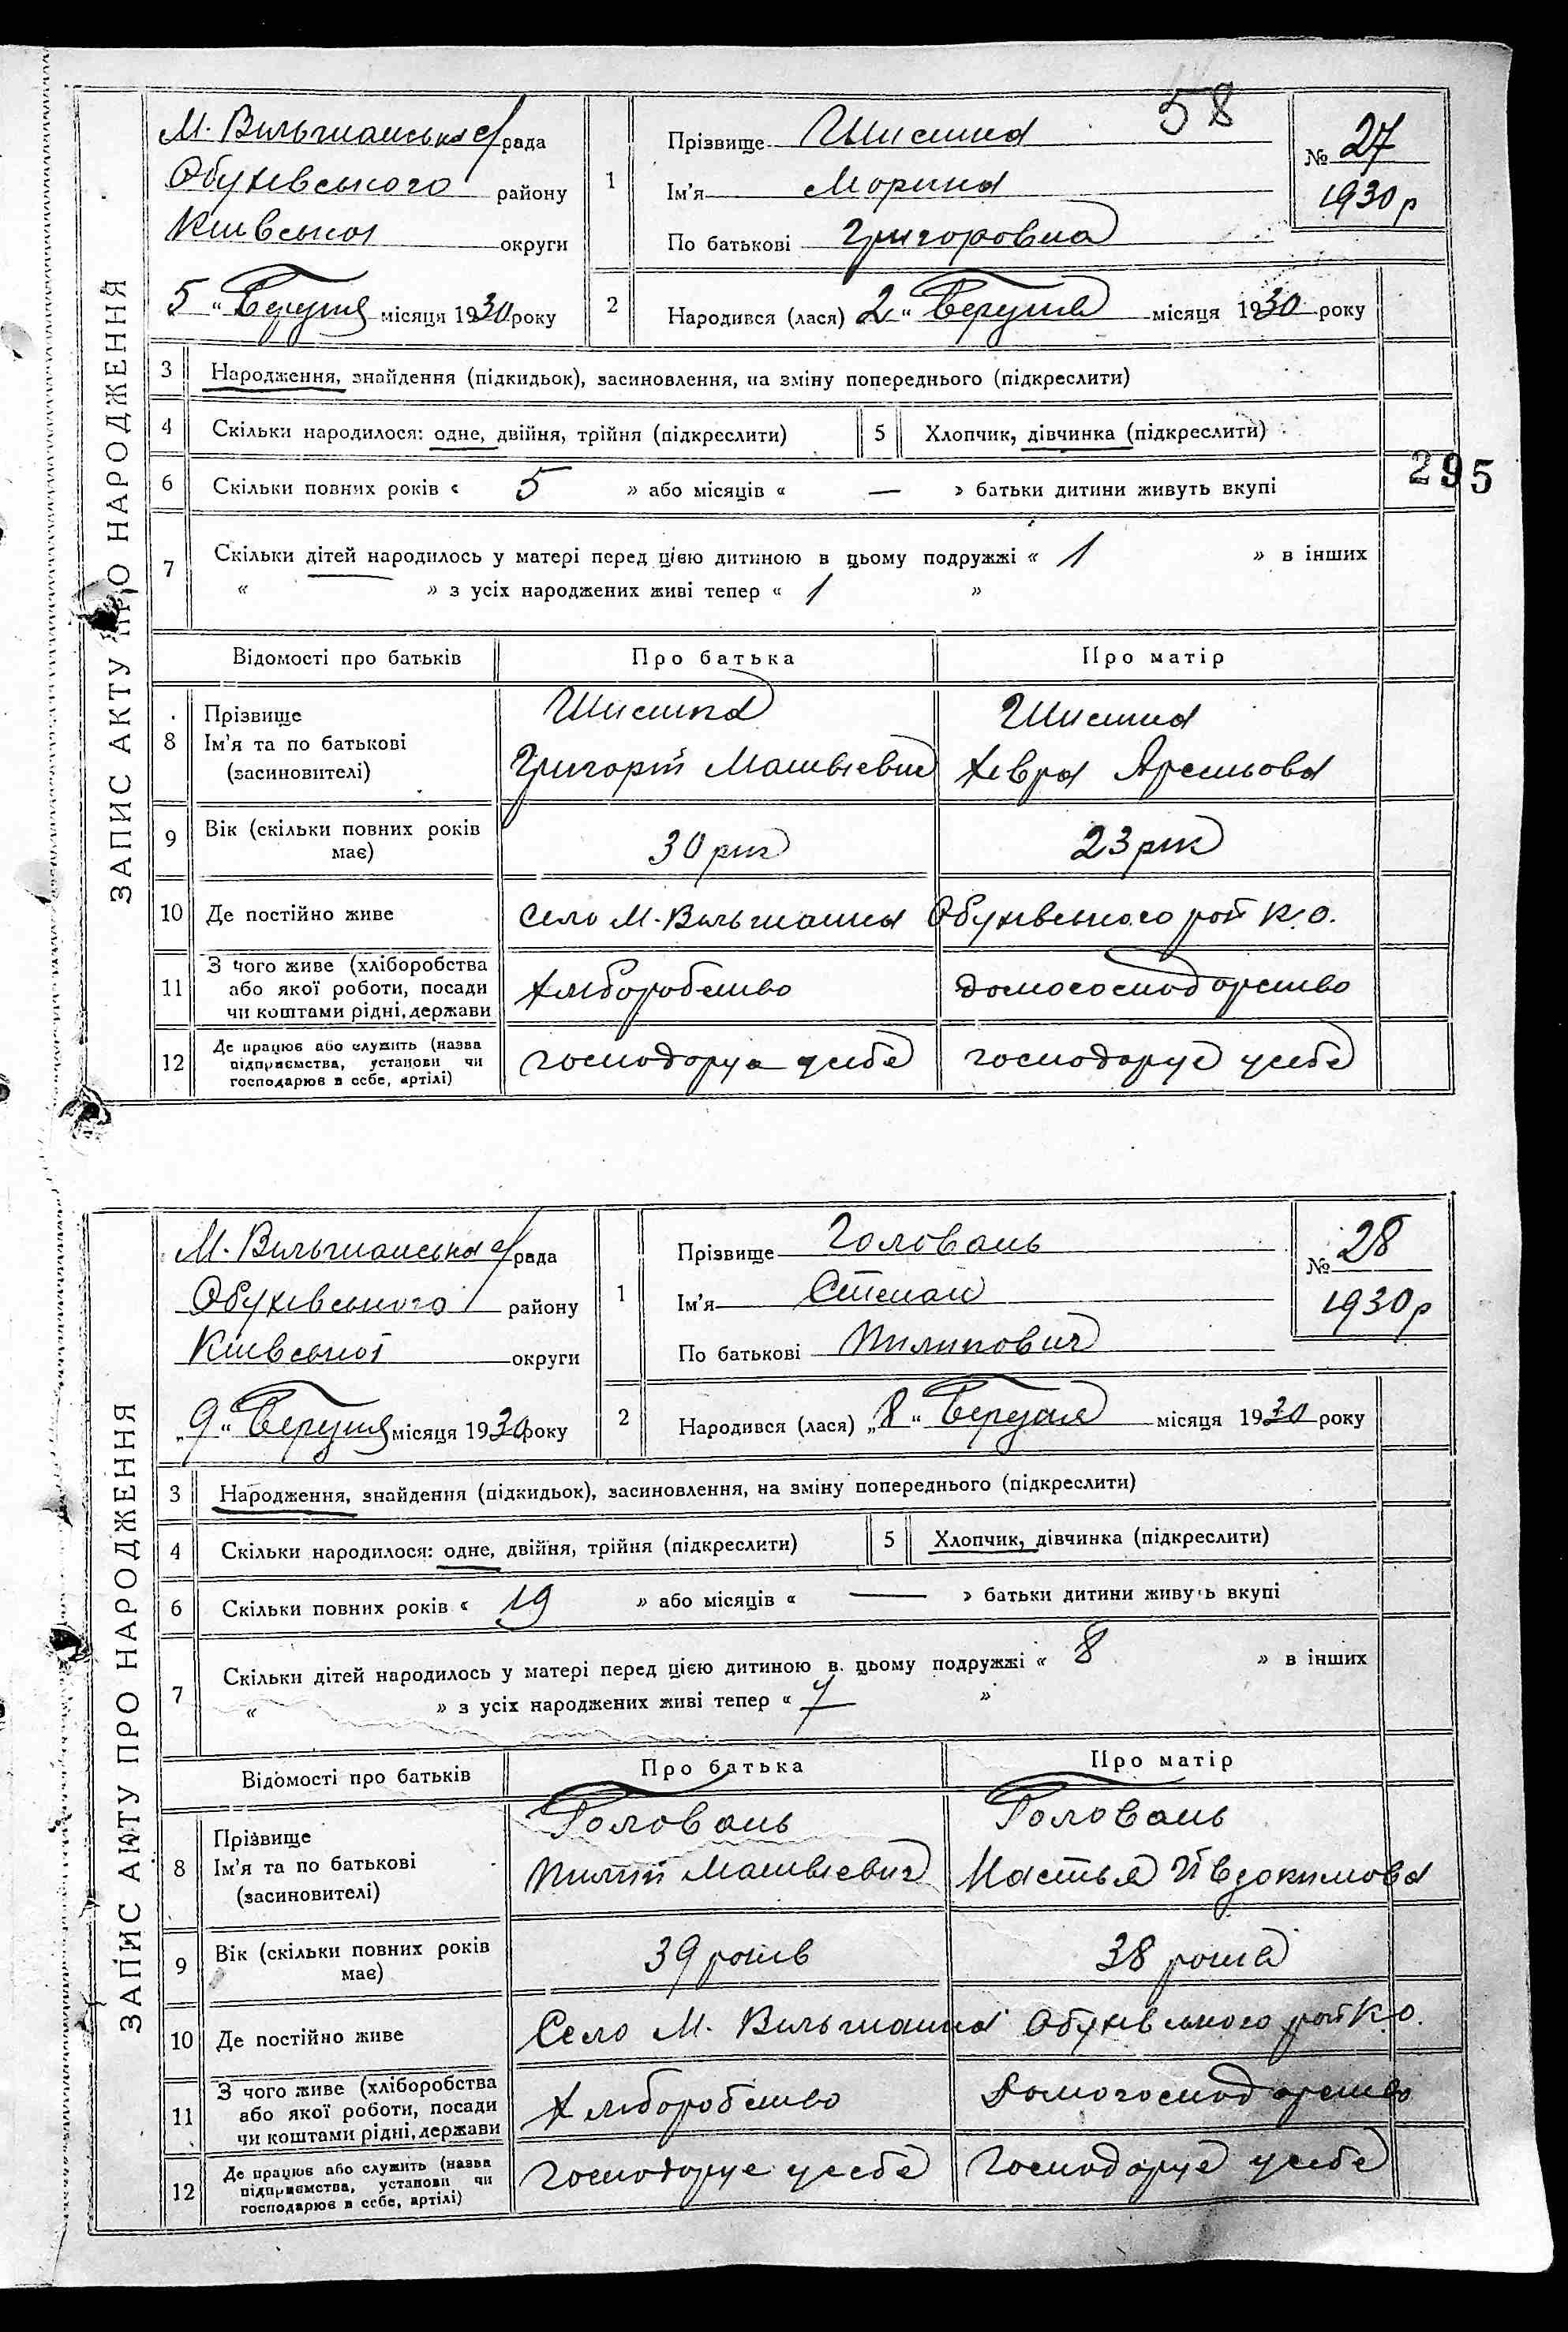 58
ЗАПИС АКТУ ПРО НАРОДЖЕННЯ
М. Вильшанська с/рада
Обухівського району
Київської округи
5 " Березня місяця 1930 року
1
Прізвище
Ім'я Морина
По батькові Григоровна
№ 27
1930 р
2
Народився (лася) 2 " Березня місяця 1930 року
3 Народження, знайдення (підкидьок), засиновлення, на зміну попереднього (підкреслити)
4 Скільки народилося: одне, двійня, трійня (підкреслити) 5 Хлопчик, дівчинка (підкреслити)
295
6 Скільки повних років « 5 » або місяців « — » батьки дитини живуть вкупі
7 Скільки дітей народилось у матері перед цією дитиною в цьому подружжі « 1 » в інших
« » з усіх народжених живі тепер « 1 »
Відомості про батьків Про батька Про матір
8 Прізвище
Ім'я та по батькові
(засиновителі)
Григорій Матвієвич
Хівря Арсеньова
9 Вік (скільки повних років
має)
30 рік 23 рік
10 Де постійно живе Село М. Вильшанка Обухівського рай К.О.
11 З чого живе (хліборобства
або якої роботи, посади
чи коштами рідні, держави
Хліборобство домогосподарство
12 Де працює або служить (назва
підприємства, установи чи
господарює в себе, артілі)
господарує у себе господарує у себе
ЗАПИС АКТУ ПРО НАРОДЖЕННЯ
М. Вильшанська с/рада
Обухівського району
Київської округи
„9 " Березня місяця 1930 року
1
Прізвище Головань
Ім'я Степан
По батькові Пилипович
№ 28
1930 р
2
Народився (лася) „8 " Березня місяця 1930 року
3 Народження, знайдення (підкидьок), засиновлення, на зміну попереднього (підкреслити)
4 Скільки народилося: одне, двійня, трійня (підкреслити) 5 Хлопчик, дівчинка (підкреслити)
6 Скільки повних років « 19 » або місяців « — » батьки дитини живуть вкупі
7 Скільки дітей народилось у матері перед цією дитиною в цьому подружжі « 8 » в інших
« » з усіх народжених живі тепер « 7 »
Відомості про батьків Про батька Про матір
8 Прізвище
Ім'я та по батькові
(засиновителі)
Головань
Пилип Матвієвич
Головань
Настья Йвдокимова
9 Вік (скільки повних років
має)
39 років 38 років
10 Де постійно живе Село М. Вильшанка Обухівського рай К.О.
11 З чого живе (хліборобства
або якої роботи, посади
чи коштами рідні, держави
Хліборобство Домогосподарство
12 Де працює або служить (назва
підприємства, установи чи
господарює в себе, артілі)
Господарує у себе Господарує у себе